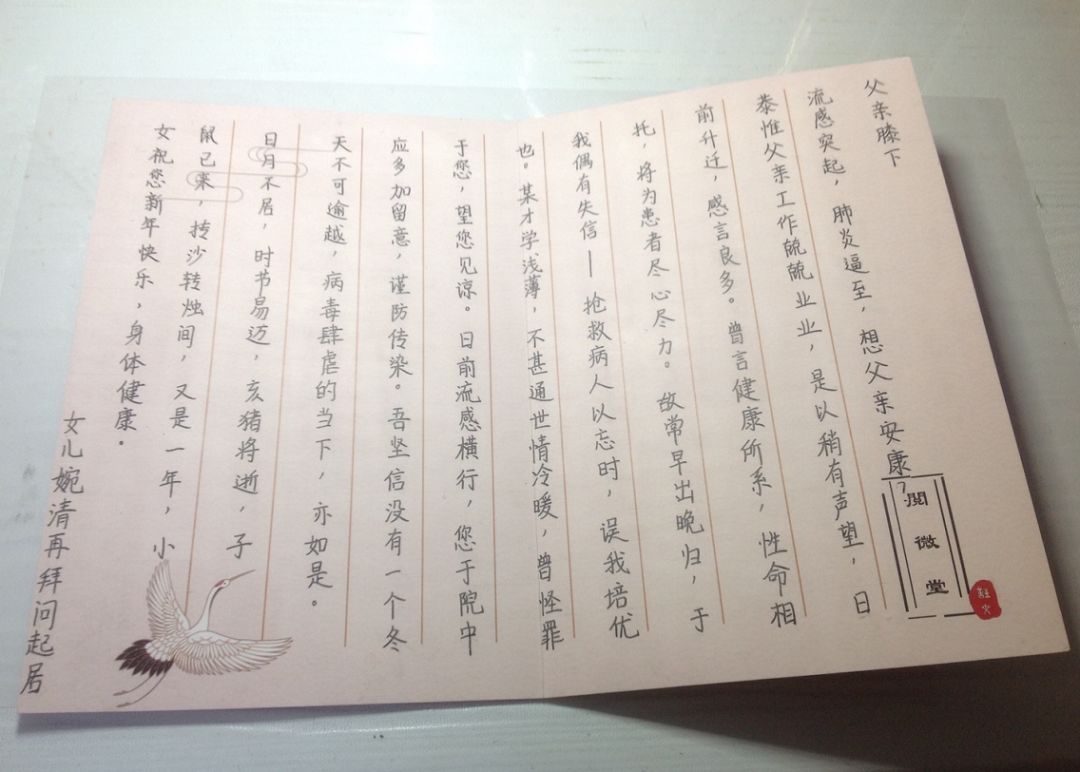 父亲膝下
流感突起，肺炎逼至，想父亲安康？
恭惟父亲工作兢兢业业，是以稍有声望，日
前升迁，感言良多。曾言健康所系，性命相
托，将为患者尽心尽力。故常早出晚归，于
我偶有失信——抢救病人以忘时，误我培优
也。某才学浅薄，不甚通世情冷暖，曾怪罪
于您，望您见谅。日前流感横行，您于院中
应多加留意，谨防传染。吾坚信没有一个冬
天不可逾越，病毒肆虐的当下，亦如是。
日月不居，时节易迈，亥猪将逝，子
鼠已来，抟沙转烛间，又是一年，小
女祝您新年快乐，身体健康。
女儿婉清再拜问起居
閲微堂